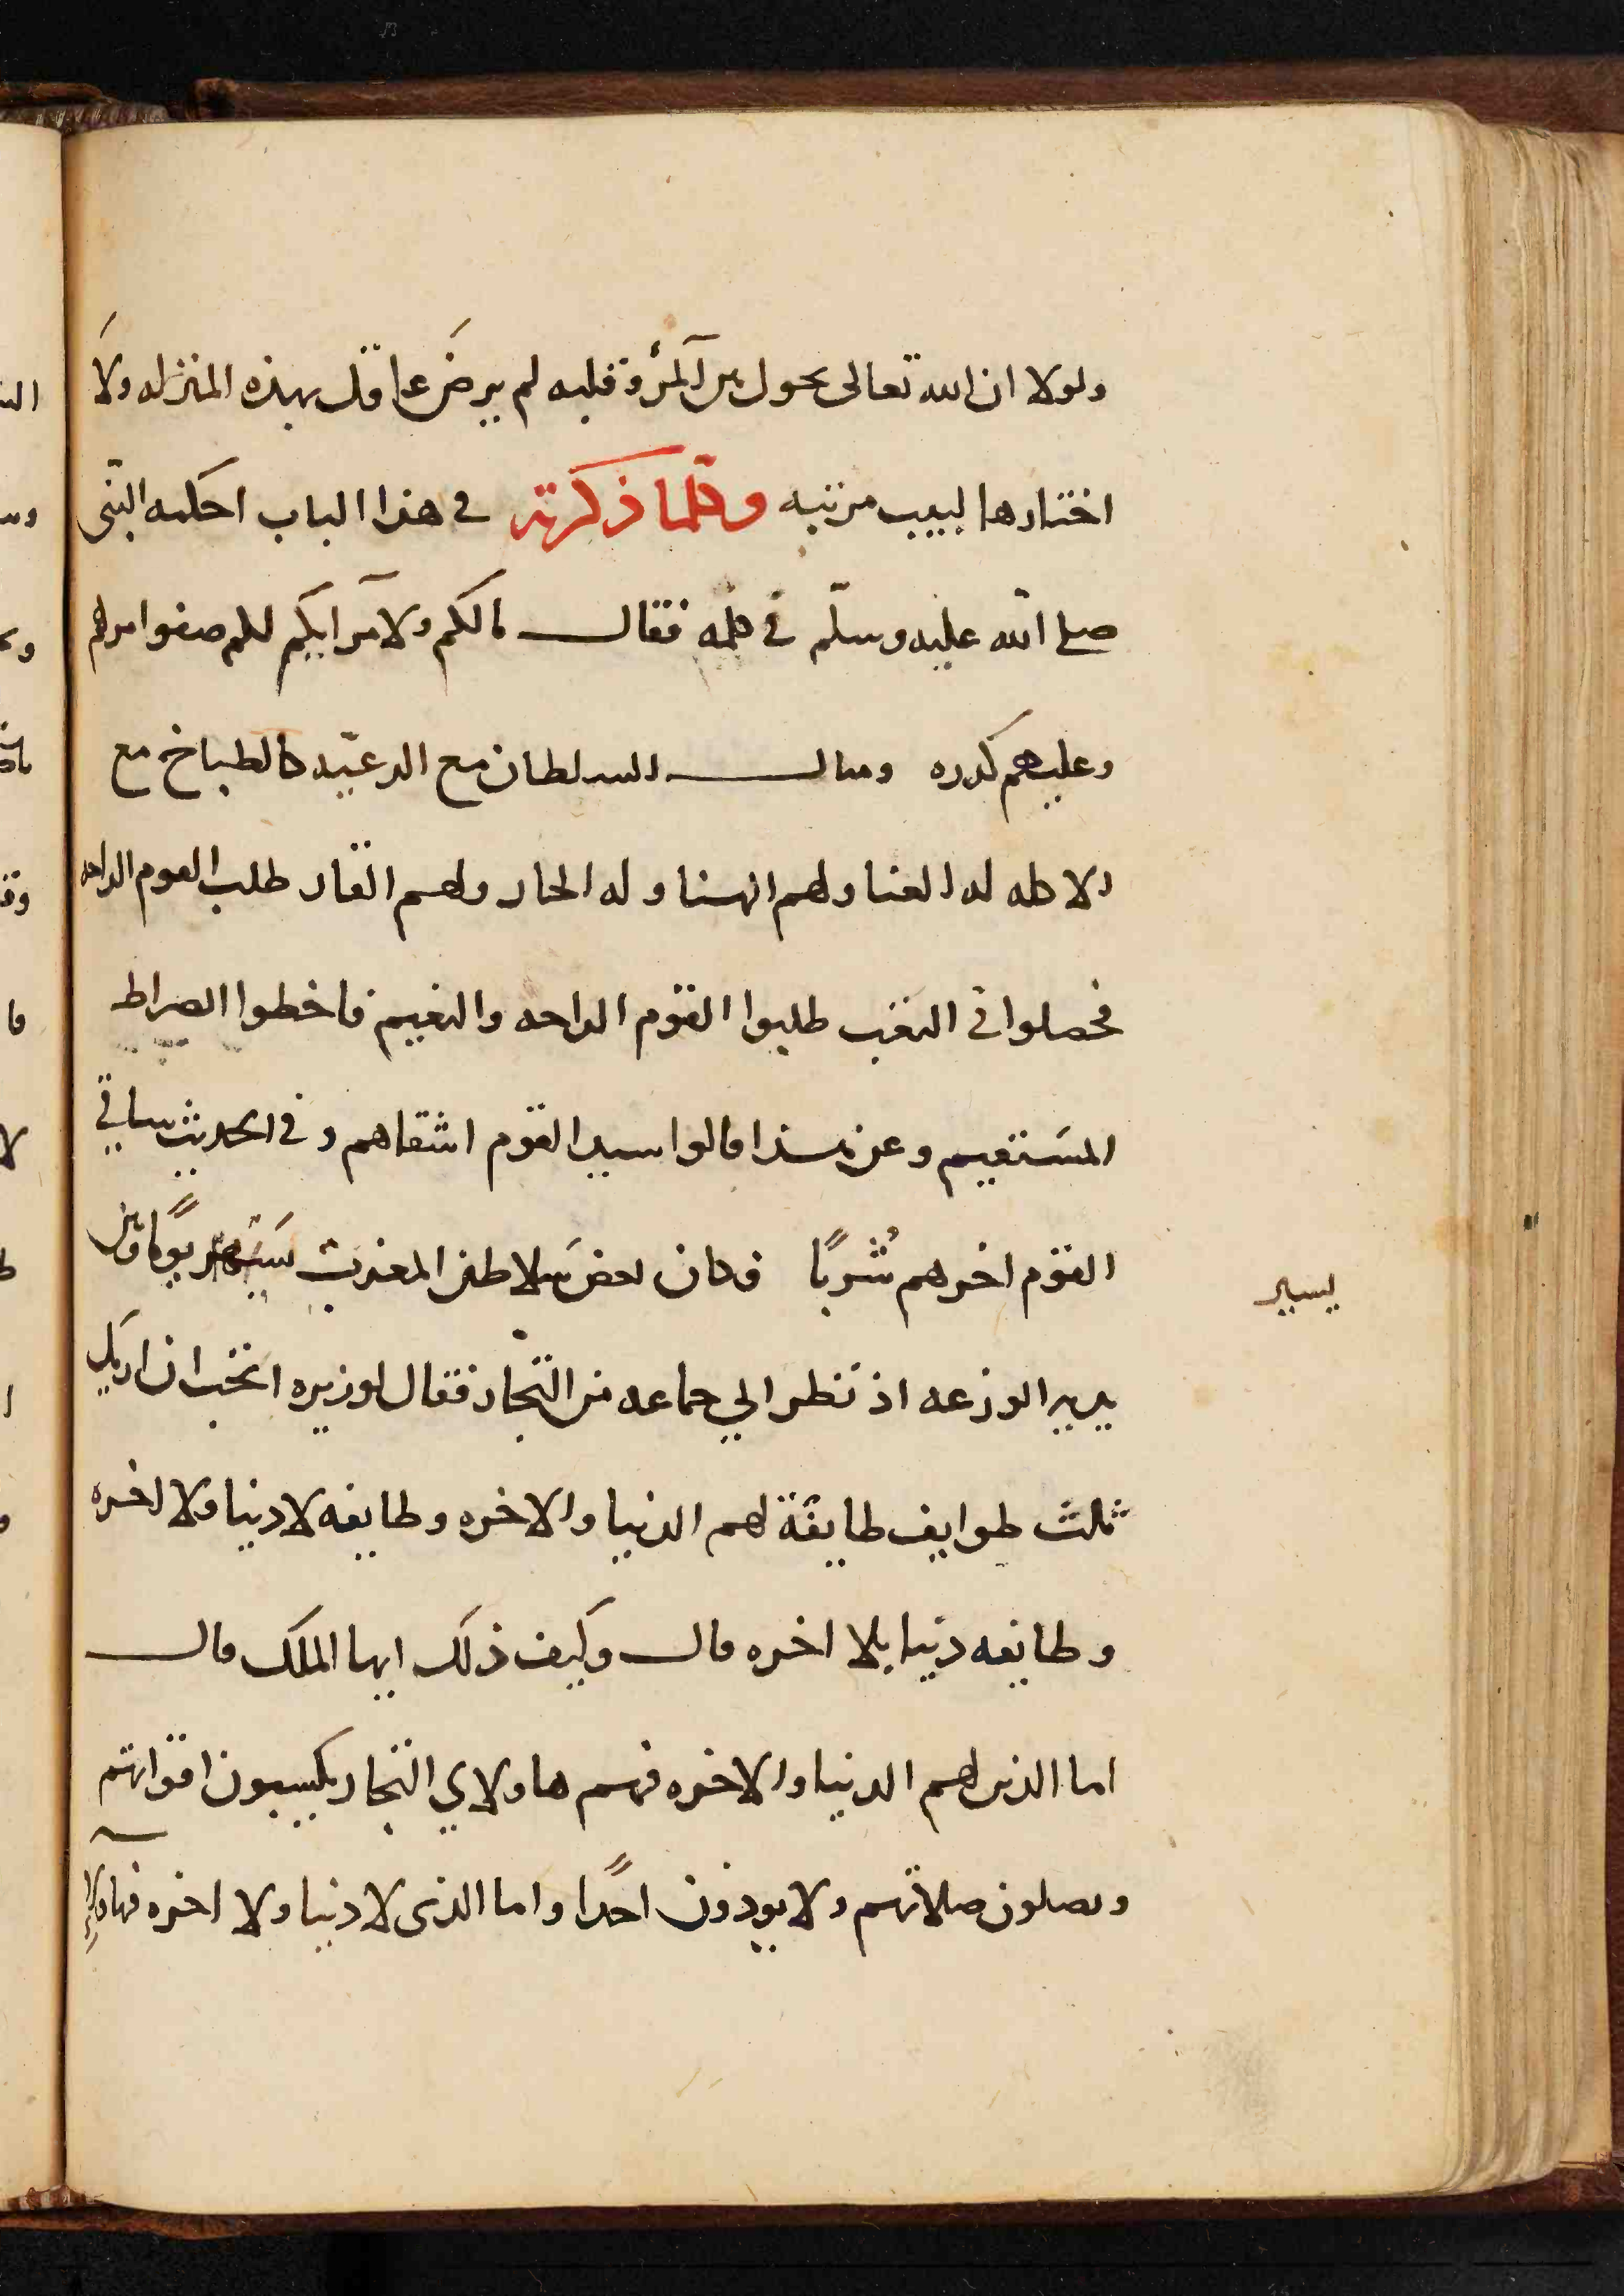 ولولا ان الله تعالى يحول بين المرء وقلبه لم يرض عاقل بهذه المنزله ولا
اختارها لبيب مرتبه وكلما ذكرته في هذا الباب احكمه النبي
صلى الله عليه وسلم في كلمه فقال مالكم ولامرايكم لكم صفوا مرهم
وعليهم كدره ومثال السلطان مع الرعيه كالطباخ مع
الاكله له العنا ولهم الهنا وله الحار ولهم القار طلب القوم الراحه
فحصلوا في التعب طلبوا القوم الراحه والنعيم فاخطوا الصراط
المستقيم وعن هذا قالوا سيد القوم اشقاهم وفي الحديث ساقي
القوم اخرهم شربا وكان بعض سلاطين المغرب يوما وبين
يسير
يديه الوزعه اذ نظر الي جماعه من التجار فقال لوزيره اتحب ان اريك
ثلث طوايف طايفة لهم الدنيا والاخره وطايفه لا دنيا ولا اخره
وطايفه دنيا بلا اخره قال وكيف ذلك ايها الملك قال
اما الذين لهم الدنيا والاخره فهم هاولاي التجار يكسبون اقواتهم
ويصلون صلاتهم ولا يوذون احدا واما الذي لا دنيا ولا اخره فهاولاء